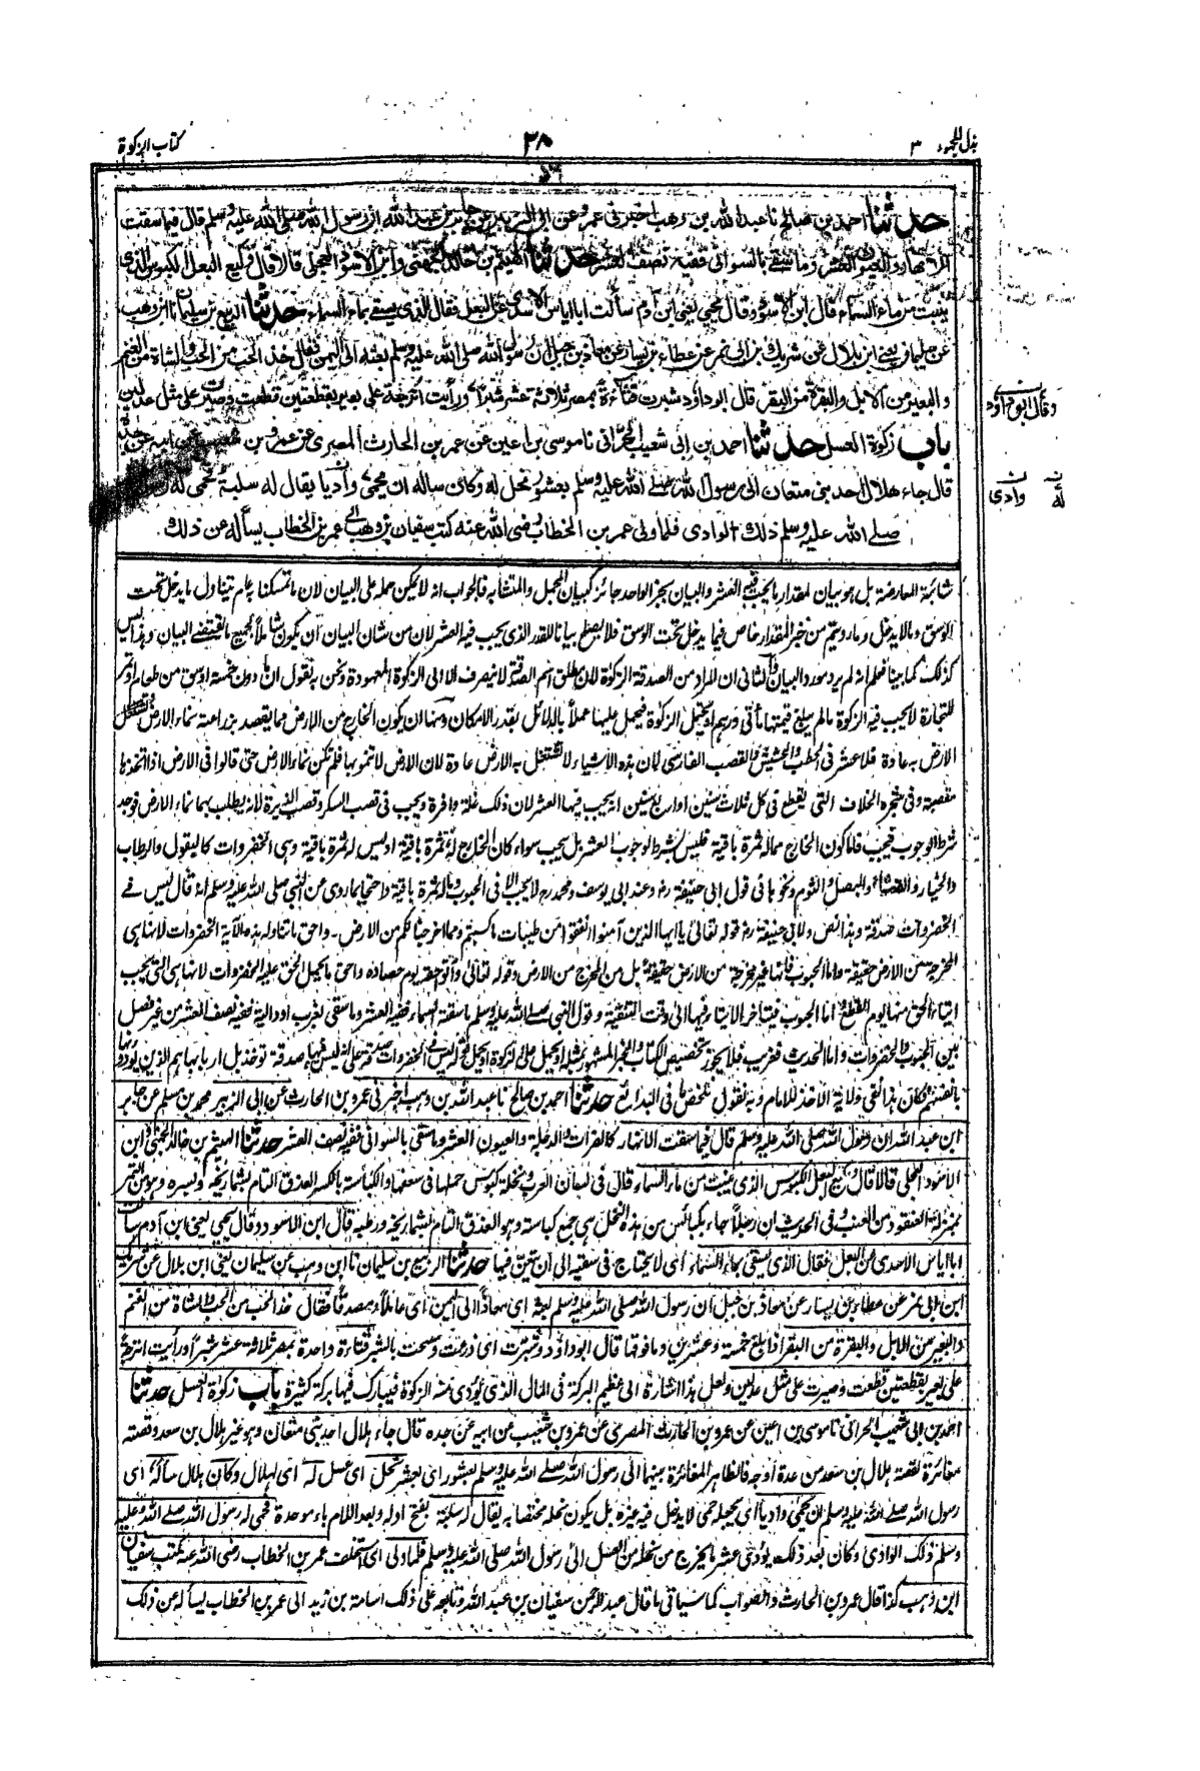 بذل المجهود ٣
٣٨
كتاب الزكوة
حدثنا احمد بن صالح نا عبد الله بن وهب اخبرنى عمرو عن ابى الزبير عن جابر بن عبد الله ان رسول الله صلى الله عليه وسلم قال فيما سقت
الانهار والعيون العشر وما سقى بالسوانى ففيه نصف العشر حدثنا الهيثم بن خالد الجهنى وابن الاسود العجلى قالا قال وكيع البعل الكبوس الذى
ينبت من ماء السماء قال ابن الاسود وقال يحيى يعنى ابن آدم سألت ابا اياس الاسدى عن البعل فقال الذى يسقى بماء السماء حدثنا الربيع بن سليمان نا ابن وهب
عن سليمان يعنى ابن بلال عن شريك بن ابى نمر عن عطاء بن يسار عن معاذ بن جبل ان رسول الله صلى الله عليه وسلم بعثه الى اليمن فقال خذ الحب من الحب والشاة من الغنم
والبعير من الابل والبقرة من البقر قال ابو داود شبرت قثاءة بمصر ثلاثة عشر شبرا ورأيت اترجة على بعير بقطعتين قطعت وصيرت على مثل عدلين
وقال ابو داود
باب زكوة العسل حدثنا احمد بن ابى شعيب الحرانى نا موسى بن اعين عن عمرو بن الحارث المصرى عن عمرو بن شعيب عن ابيه عن جده
قال جاء هلال احد بنى متعان الى رسول الله صلى الله عليه وسلم بعشور نحل له وكان سأله ان يحمى واديا يقال له سلبة فحمى له
له وادى
صلے الله عليه وسلم ذلك الوادى فلما ولى عمر بن الخطاب رضى الله عنه كتب سفيان بن وهب الى عمر بن الخطاب يسأله عن ذلك
شائبة المعارضة بل هو بيان لمقدار ما يجب فيه العشر والبيان بخبر الواحد جائز كبيان المجمل والمتشابه فالجواب انه لا يمكن حمله على البيان لان ما تمسكنا به عام يتناول ما يدخل تحت
الوسق وما لا يدخل وما رويتم من خبر المقدار خاص فيما يدخل تحت الوسق فلا يصلح بيانا للقدر الذى يجب فيه العشر لان من شان البيان ان يكون شاملا لجميع ما يقتضى البيان وهذا ليس
كذلك كما بينا فعلم انه لم يرد مورد البيان والثانى ان المراد من الصدقة الزكوة لان مطلق اسم الصدقة لا ينصرف الا الى الزكوة المعهودة ونحن به نقول ان ما دون خمسة اوسق من طعام او تمر
للتجارة لا يجب فيه الزكوة ما لم يبلغ قيمتها مأتى درهم او يحتمل الزكوة فيحمل عليها عملا بالدلائل بقدر الامكان ومنها ان يكون الخارج من الارض مما يقصد بزراعته نماء الارض وتستغل
الارض به عادة فلا عشر فى الحطب والحشيش والقصب الفارسى لان هذه الاشياء لا تستغل به الارض عادة لان الارض لا تنمو بها فلم تكن نماء الارض حتى قالوا فى الارض اذا اتخذها
مقصبة وفى شجره الخلاف التى يقطع فى كل ثلاث سنين او اربع سنين انه يجب فيها العشر لان ذلك غلة وافرة ويجب فى قصب السكر وقصب الذريرة لانه يطلب بهما نماء الارض فوجد
شرط الوجوب فيجب فاما كون الخارج مما له ثمرة باقية فليس بشرط لوجوب العشر بل يجب سواء كان الخارج له ثمرة باقية او ليس له ثمرة باقية وهى الخضروات كالبقول والرطاب
والخيار والقثاء والبصل والثوم ونحوها فى قول ابى حنيفة رح وعند ابى يوسف ومحمد رح لا يجب الا فى الحبوب وما له ثمرة باقية واحتجا بما روى عن النبى صلى الله عليه وسلم انه قال ليس فى
الخضروات صدقة وهذا نص ولابى حنيفة رح قوله تعالى يا ايها الذين آمنوا انفقوا من طيبات ما كسبتم ومما اخرجنا لكم من الارض۔ واحق ما تتناوله هذه الآية الخضروات لانها هى
المخرجة من الارض حقيقة واما الحبوب فانها غير مخرجة من الارض حقيقة بل من المخرج من الارض وقوله تعالى وآتوا حقه يوم حصاده واحق ما يحمل الحق عليه الخضروات لانها هى التى يجب
ايتاء الحق منها يوم القطع اما الحبوب فيتاخر الايتاء فيها الى وقت التنقية وقول النبى صلے الله عليه وسلم ما سقته السماء ففيه العشر وما سقى بغرب او دالية ففيه نصف العشر من غير فصل
بين الحبوب والخضروات واما الحديث فغريب فلا يجوز تخصيص الكتاب والخبر المشهور بمثله او يحمل على الزكوة او يحمل قوله ليس فى الخضروات صدقة على انه ليس فيها صدقة تؤخذ بل اربابها هم الذين يؤدونها
بانفسهم فكان هذا نفى ولاية الاخذ للامام وبه نقول ملخص ما فى البدائع حدثنا احمد بن صالح نا عبد الله بن وهب اخبرنى عمرو بن الحارث عن ابى الزبير محمد بن مسلم عن جابر
ابن عبد الله ان رسول الله صلى الله عليه وسلم قال فيما سقت الانهار كالفرات والدجلة والعيون العشر وما سقى بالسوانى ففيه نصف العشر حدثنا الهيثم بن خالد الجهنى وابن
الاسود العجلى قالا قال وكيع البعل الكبوس الذى ينبت من ماء السماء قال فى لسان العرب ونخلة كبوس حملها فى سعفها والكباسة بالكسر العذق التام بشماريخه وبسره وهو من التمر
بمنزلة العنقود من العنب وفى الحديث ان رجلا جاء بكبائس من هذه النخل هى جمع كباسة وهو العذق التام بشماريخه ورطبه قال ابن الاسود وقال يحيى يعنى ابن آدم سألت
ابا اياس الاسدى عن البعل فقال الذى يسقى بماء السماء اى لا يحتاج فى سقيه الى ان يتعنى فيها حدثنا الربيع بن سليمان نا ابن وهب عن سليمان يعنى ابن بلال عن شريك
ابن ابى نمر عن عطاء بن يسار عن معاذ بن جبل ان رسول الله صلى الله عليه وسلم بعثه اى معاذا الى اليمن اى عاملا ومصدقا فقال خذ الحب من الحب والشاة من الغنم
والبعير من الابل والبقرة من البقر اذا بلغ خمسة وعشرين وما فوقها قال ابو داود وشبرت اى ذرعت ومسحت بالشبر قثاءة واحدة بمصر ثلاثة عشر شبرا ورأيت اترجة
على بعير بقطعتين قطعت وصيرت على مثل عدلين ولعل هذا اشارة الى عظيم البركة فى المال الذى يؤدى منه الزكوة فيبارك فيها بركة كثيرة باب زكوة العسل حدثنا
احمد بن ابى شعيب الحرانى نا موسى بن اعين عن عمرو بن الحارث المصرى عن عمرو بن شعيب عن ابيه عن جده قال جاء هلال احد بنى متعان وهو غير هلال بن سعد وقصته
مغائرة لقصة هلال بن سعد من عدة اوجه فالظاهر المغائرة بينهما الى رسول الله صلے الله عليه وسلم بعشور اى بعشر نحل اى عسل له اى لهلال وكان هلال سأله اى
رسول الله صلے الله عليه وسلم ان يحمى واديا اى يجعله حمى لا يدخل فيه غيره بل يكون نحله مختصا به يقال له سلبة بفتح اوله وبعد اللام باء موحدة فحمى له رسول الله صلے الله عليه
وسلم ذلك الوادى وكان بعد ذلك يؤدى عشر ما يخرج من نحله من العسل الى رسول الله صلى الله عليه وسلم فلما ولى اى استخلف عمر بن الخطاب رضى الله عنه كتب سفيان
ابن وهب كذا قال عمرو بن الحارث والصواب كما سياتى ما قال عبد الرحمن سفيان بن عبد الله وتابعه على ذلك اسامة بن زيد الى عمر بن الخطاب يسأله عن ذلك